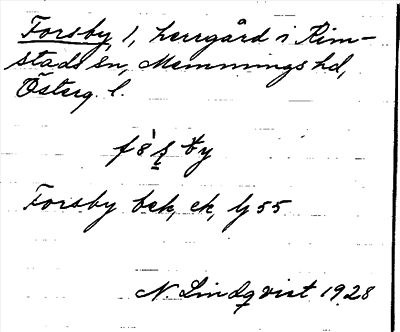 Forsby, 1, herrgård i Rim-
stads sn, Memmings hd,
Österg. l.
Forsby bek, ek, ly 55
N. Lindqvist 1928